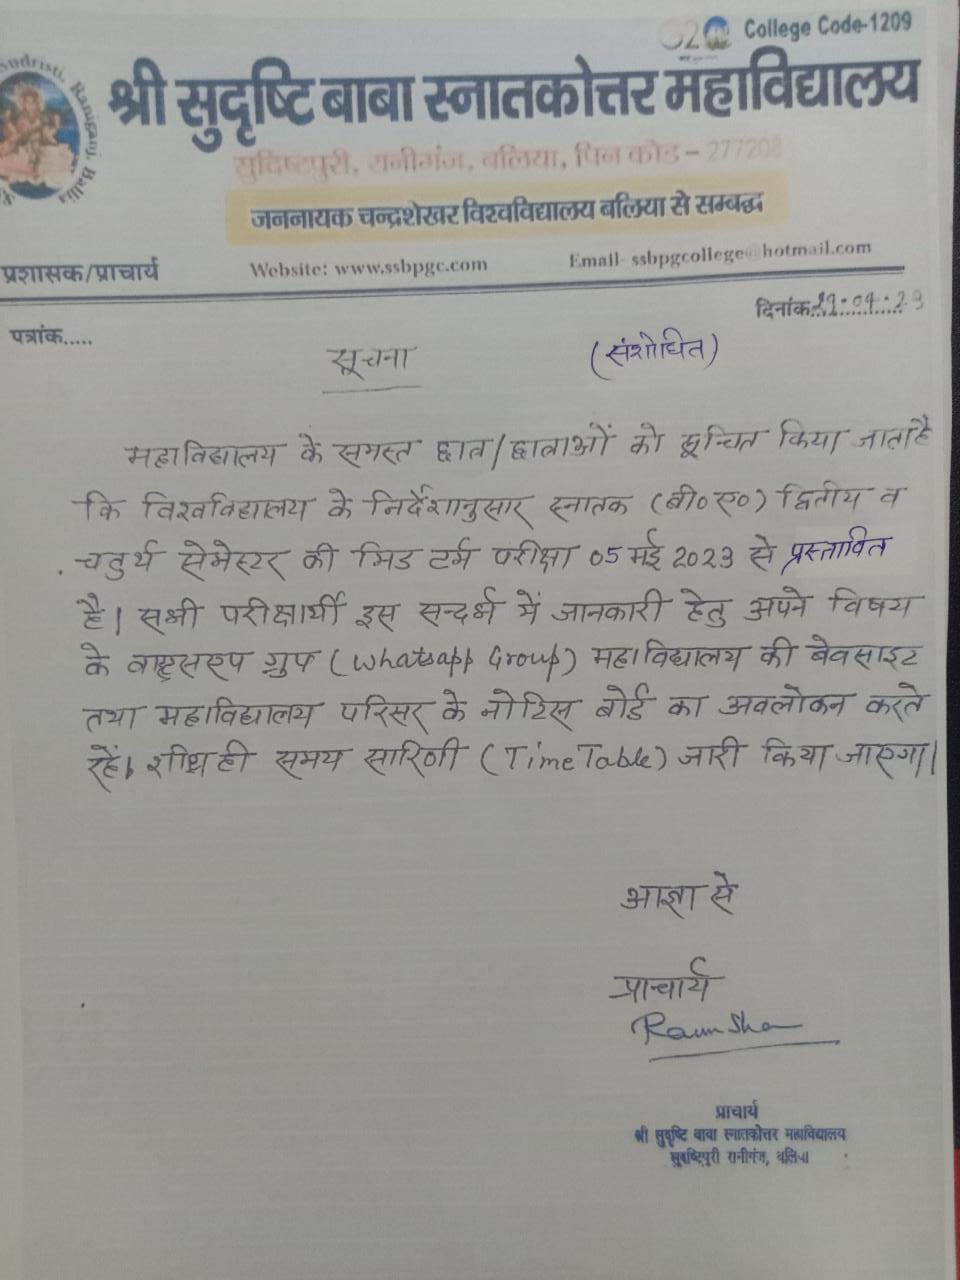 College Code-1209
श्री सुदृष्टि बाबा स्नातकोत्तर महाविद्यालय
सुदिष्टपुरी, रानीगंज, बलिया, पिन कोड - 277208
जननायक चन्द्रशेखर विश्वविद्यालय बलिया से सम्बद्ध
प्रशासक/प्राचार्य
Website: www.ssbpgc.com
Email- ssbpgcollege@hotmail.com
पत्रांक.....
दिनांक
सूचना
(संशोधित)
महाविद्यालय के समस्त छात्र/छात्राओं को सूचित किया जाता है
कि विश्वविद्यालय के निर्देशानुसार स्नातक (बी०ए०) द्वितीय व
चतुर्थ सेमेस्टर की मिड टर्म परीक्षा 05 मई 2023 से प्रस्तावित
है। सभी परीक्षार्थी इस सन्दर्भ में जानकारी हेतु अपने विषय
के ग्रुप (Whatsapp Group) महाविद्यालय की बेवसाइट
तथा महाविद्यालय परिसर के नोटिस बोर्ड का अवलोकन करते
रहें। शीघ्र ही समय सारिणी (Time Table) जारी किया जाएगा।
आज्ञा से
प्राचार्य
प्राचार्य
श्री सुदृष्टि बाबा स्नातकोत्तर महाविद्यालय
सुदष्टिपुरी रानीगंज, बलिया